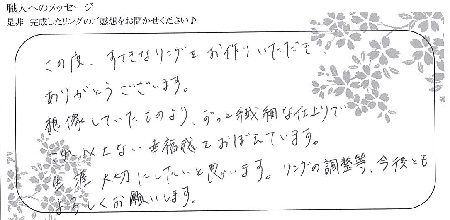 職人へのメッセージ
是非 完成したリングのご感想をお聞かせください♪
この度、すてきなリングをお作りいただきて
ありがとうございます。
想像していたものより、ずっと繊細な仕上りで
これ以上ない幸福感をおぼえています。
生涯大切にしたいと思います。リングの調整等、今後とも
よろしくお願いします。